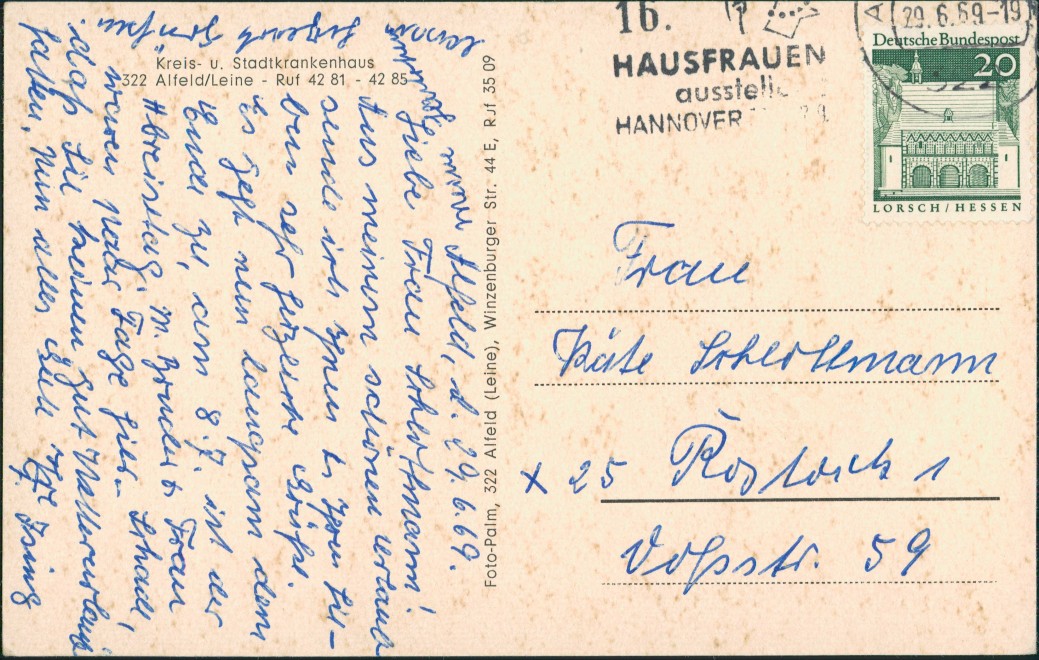 Kreis- u. Stadtkrankenhaus
322 Alfeld/Leine - Ruf 42 81 - 42 85
Alfeld, d. 29.6.69.
Liebe Frau Schlottmann!
Aus meinem schönen Urlaub
sende ich Ihnen u. Ihren Lie-
ben sehr herzliche Grüße.
Es geht nun langsam dem
Ende zu, am 8.7. ist der
Abreisetag. M. Bruder u. Frau
waren paar Tage hier.
Schade,
daß Sie keinen Zeit
hatten. Nun alles Gute Ihre
Foto-Palm, 322 Alfeld (Leine), Winzenburger Str. 44 E, Ruf 35 09
16.
HAUSFRAUEN
ausstell
HANNOVER
29.6.69-19
Deutsche Bundespost
20
LORSCH/HESSEN
Frau
Käte Schlottmann
x 25 Rostock 1
Voßstr. 59